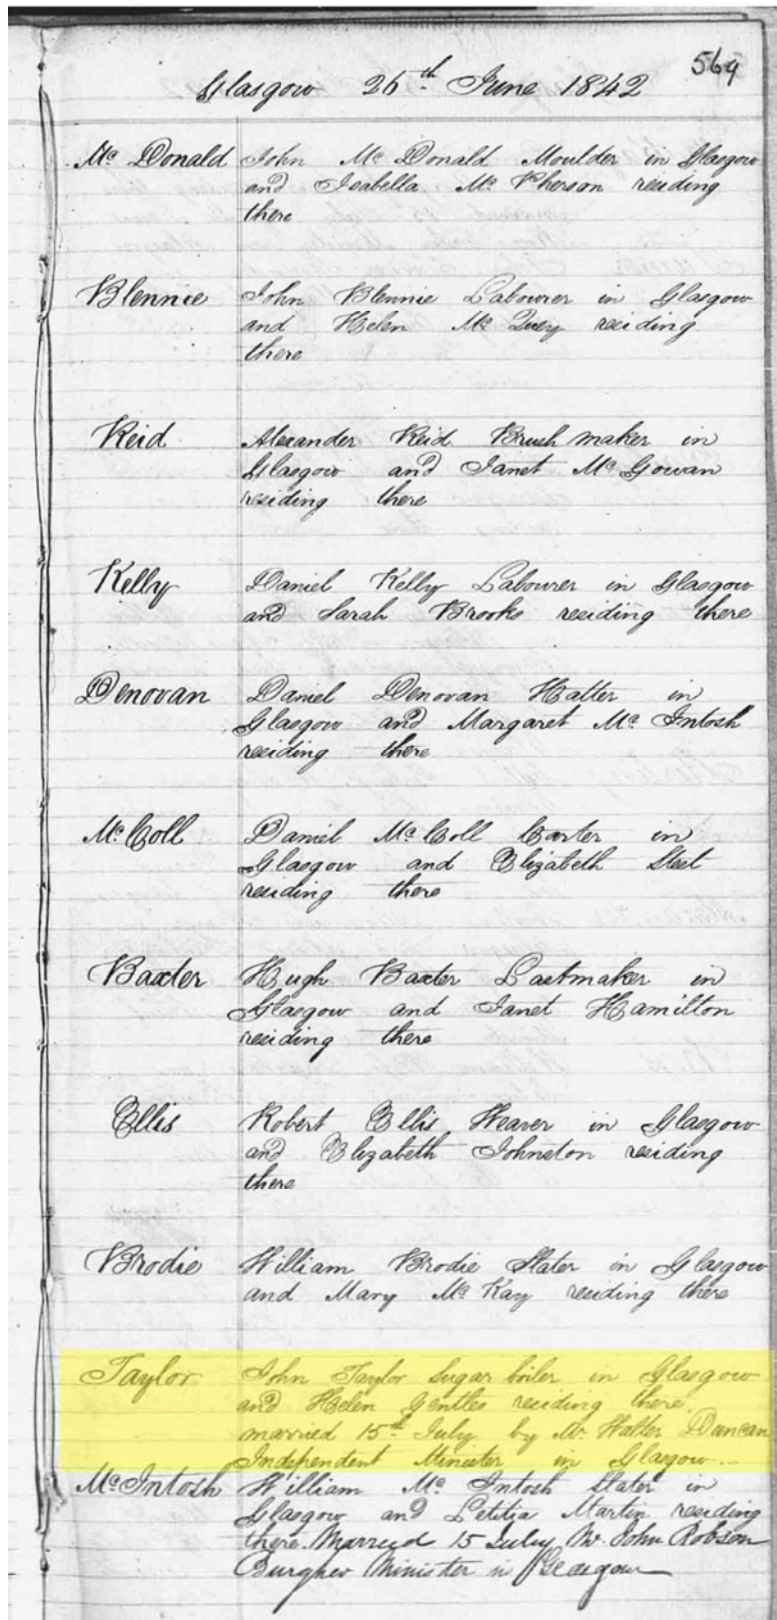 569
Glasgow 26th June 1842
Mc Donald John Mc Donald Moulder in Glasgow
and Isabella Mc Pherson residing
there
Blennie John Blennie Labourer in Glasgow
and Helen Mc Quey residing
there
Reid Alexander Reid Brush maker in
Glasgow and Janet Mc Gowan
residing there
Kelly Daniel Kelly Labourer in Glasgow
and Sarah Brooks residing there
Denovan Daniel Denovan Hatter in
Glasgow and Margaret Mc Intosh
residing there
Mc Coll Daniel Mc Coll Carter in
Glasgow and Elizabeth Steel
residing there
Baxter Hugh Baxter Lastmaker in
Glasgow and Janet Hamilton
residing there
Ellis Robert Ellis Weaver in Glasgow
and Elizabeth Johnston residing
there
Brodie William Brodie Slater in Glasgow
and Mary Mc Kay residing there
Taylor John Taylor Sugar boiler in Glasgow
and Helen Gentles residing there.
married 15th July by Mr. Walter Duncan
Independent Minister in Glasgow
Mc Intosh William Mc Intosh Slater in
Glasgow and Letitia Martin residing
there. Married 15 July Mr. John Robson
Burgher Minister in Glasgow